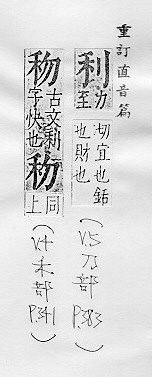 重訂直音篇
利 力至切宜也銛也財也 (V.5 刀部 P.383)
古文利字快也 同上 (V.4 禾部 P.341)